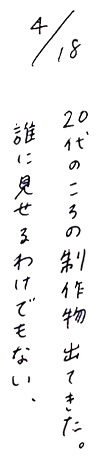 4/18
20代のころの制作物出てきた。
誰に見せるわけでもない、